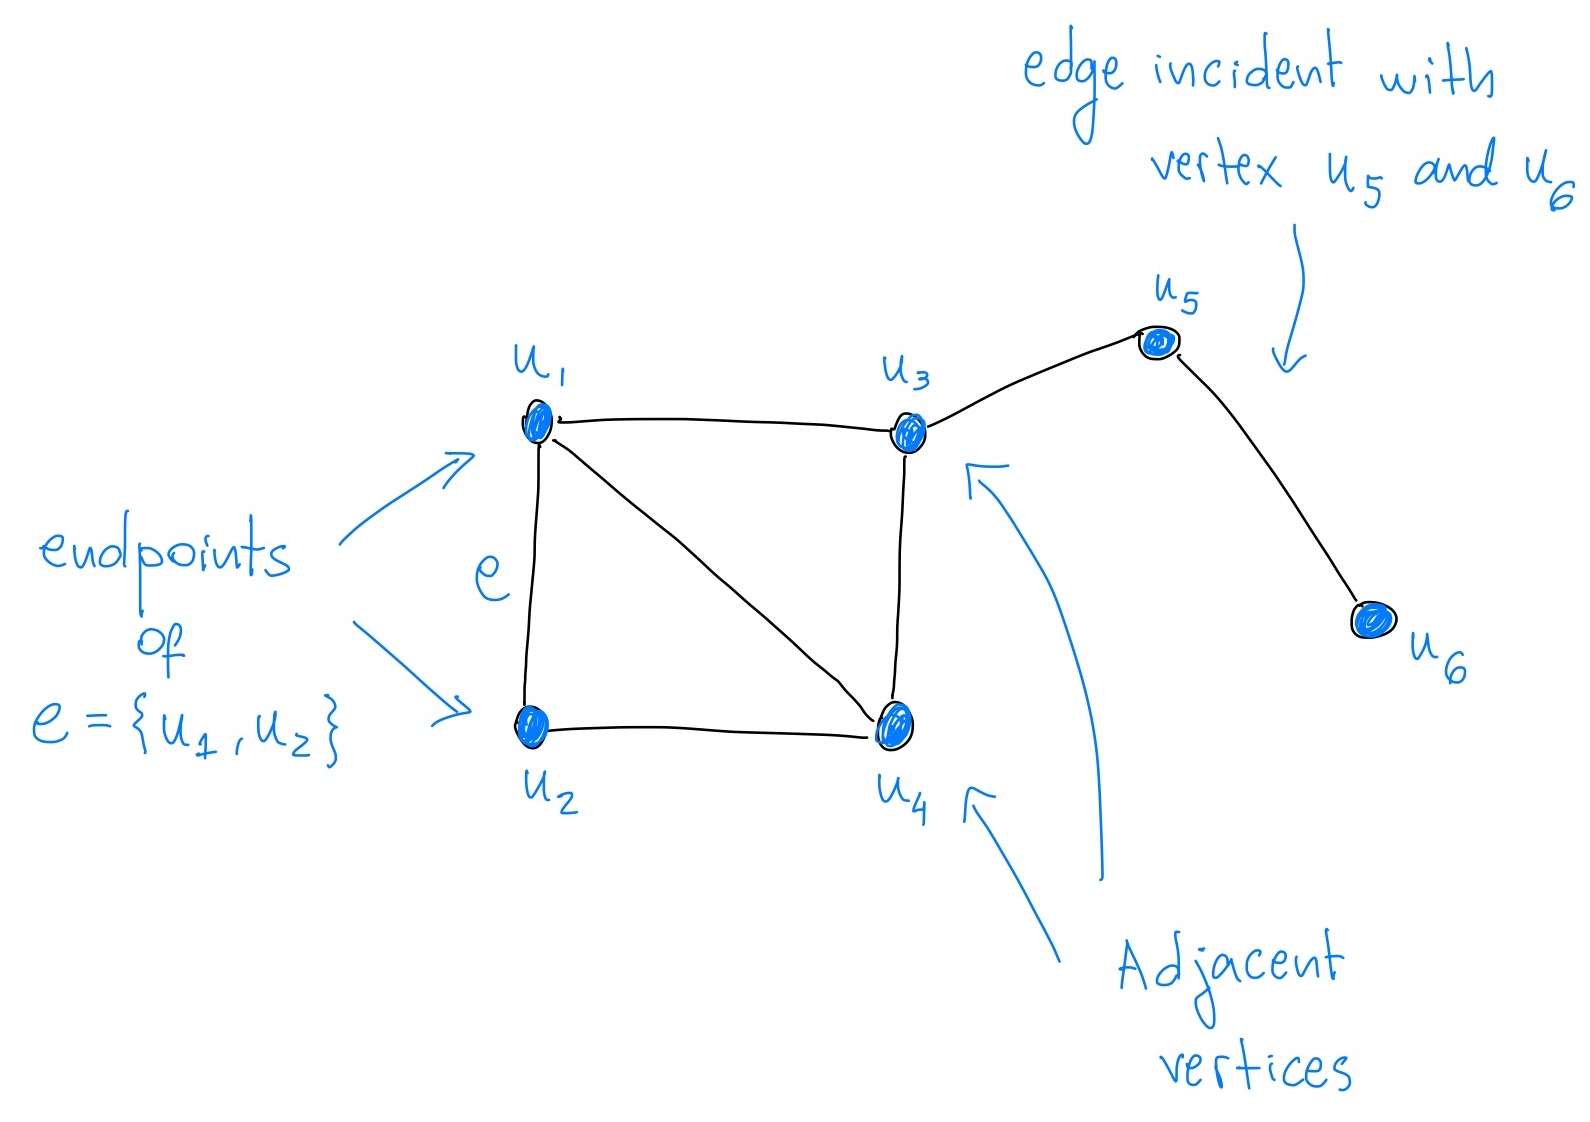 edge incident with
vertex u₅ and u₆
u₅
u₁
u₃
endpoints
of
e = {u₁, u₂}
e
u₆
u₂
u₄
Adjacent
vertices